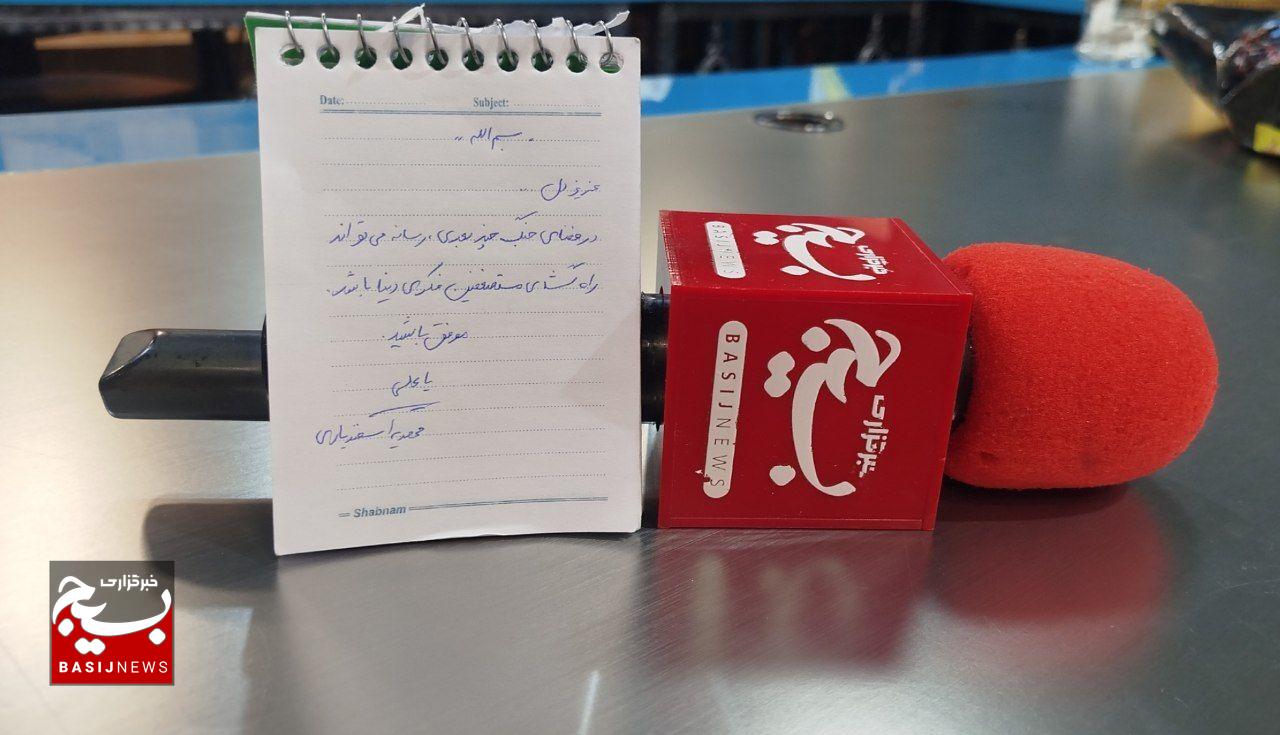 Date:
Subject:
بسم الله
عزیز دل ..
در فضای جنگ چند بعدی، رسانه می‌تواند
راه گشای مستضعفین فکری دنیا باشد.
موفق باشید.
یا علی
اسفندیاری
Shabnam
خبرگزاری
بسیج
BASIJNEWS
خبرگزاری
بسیج
BASIJNEWS
خبرگزاری
بسیج
BASIJNEWS